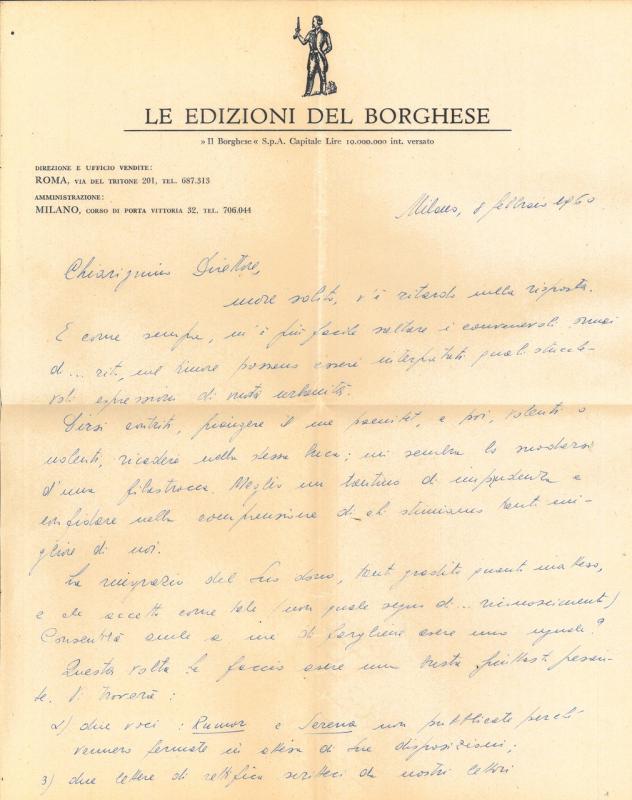 LE EDIZIONI DEL BORGHESE
» Il Borghese « S.p.A. Capitale Lire 10.000.000 int. versato
DIREZIONE E UFFICIO VENDITE:
ROMA, VIA DEL TRITONE 201, TEL. 687.313
AMMINISTRAZIONE:
MILANO, CORSO DI PORTA VITTORIA 32, TEL. 706.044
Milano, 8 febbraio 1960
Chiarissimo Direttore,
more solito, v'è ritardo nella risposta.
E come sempre, m'è più facile saltare i convenevoli ormai
di... rito, nel timore possano essere interpretati quali
espressioni di urbanità.
Dirsi contriti, piangere il me poenitet, e poi, volenti o
nolenti, ricadere nella stessa buca; mi sembra lo snodarsi
d'una filastrocca. Meglio un tantino di impudenza e
confidare nella comprensione di chi stimiamo tanto mi-
gliore di noi.
La ringrazio del Suo dono, tanto gradito quanto inatteso,
e che accetto come tale (non quale segno di... riconoscimento)
Consentirà anche a me di fargliene avere uno uguale?
Questa volta Le faccio avere una busta piuttosto pesan-
te. Vi troverà:
2) due voci: Rumor e Serena non pubblicate perché
vennero fermate in attesa di Sue disposizioni;
3) due lettere di rettifica scritteci da nostri lettori